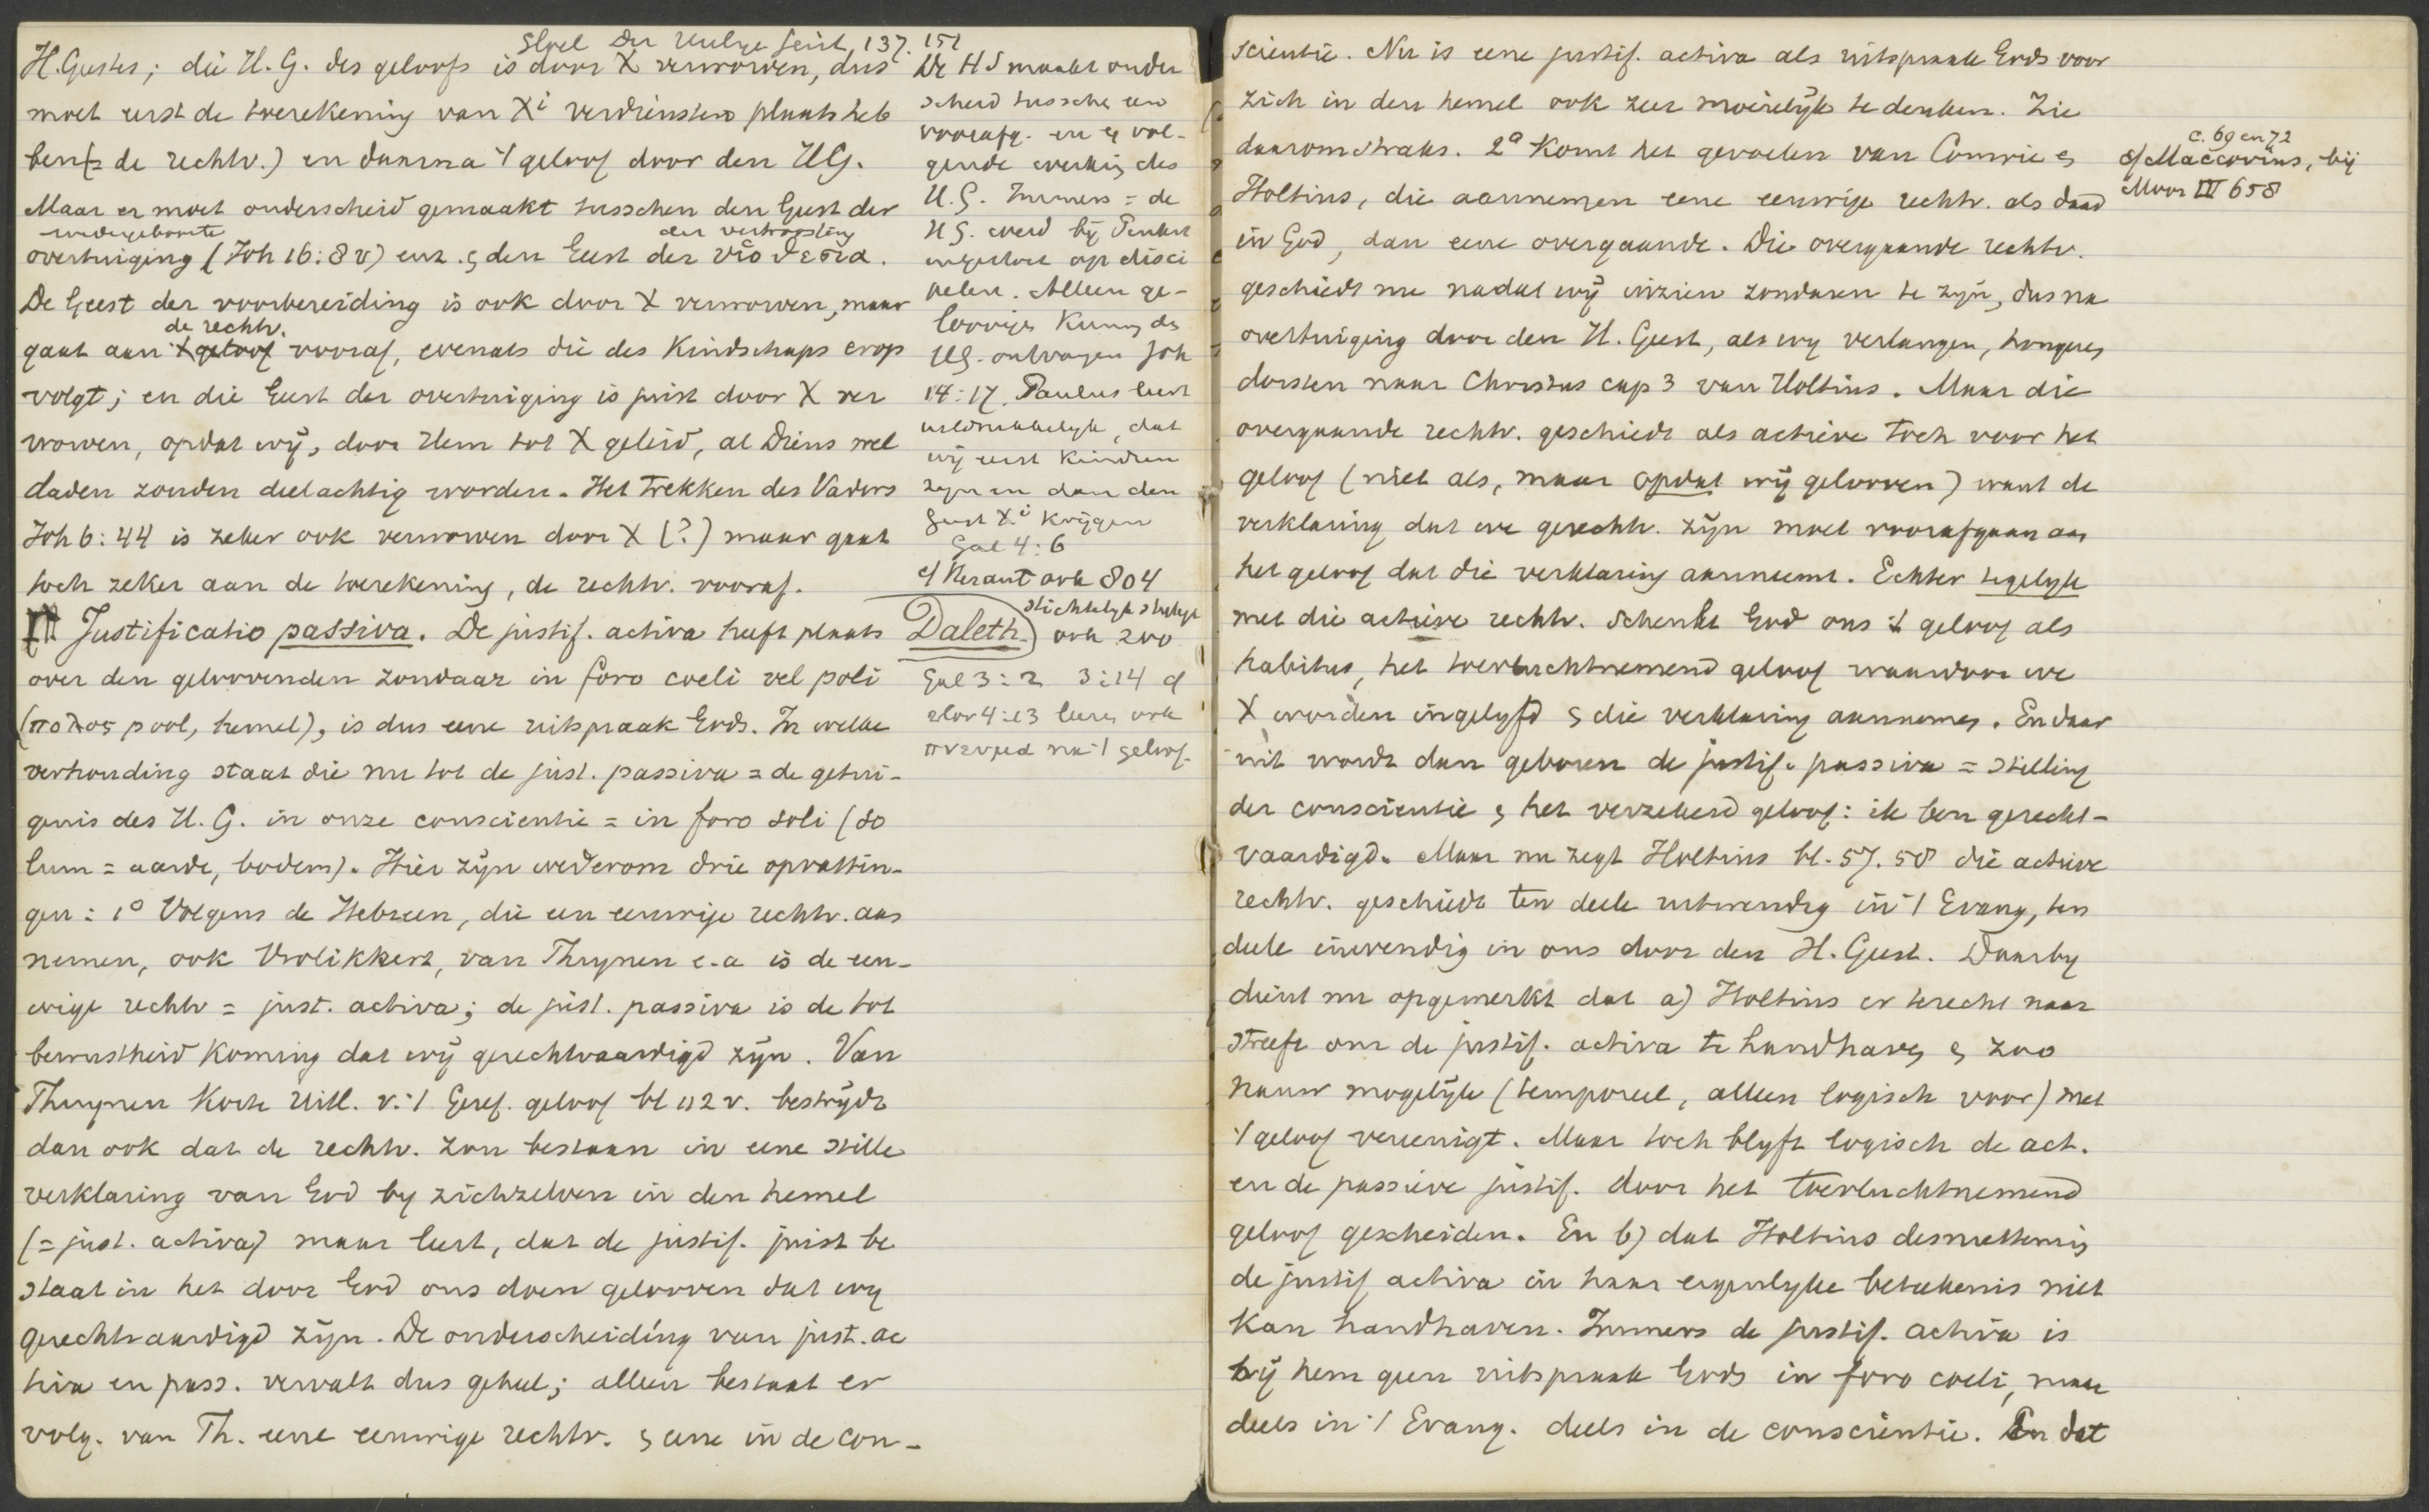 Sleel Der Heilige Geist 137. 151
H. Geestes; die H. G. des geloofs is door X verworven, dus
moet eerst de toerekening van Xi verdiensten plaats heb
ben (= de rechtv.) en daarna 't geloof door den H G.
Maar er moet onderscheid gemaakt tusschen den Geest der
wedergeboorte der vertroosting
overtuiging (Joh 16:8 v) enz. & den Geest der υἱοθεσία.
De Geest der voorbereiding is ook door X verworven, maar
de rechtv.
gaat aan 't geloof vooraf, evenals die des Kindschaps erop
volgt; en die Geest der overtuiging is juist door X ver
worven, opdat wij, door Hem tot X geleid, al Diens wel
daden zouden deelachtig worden. Het Trekken des Vaders
Joh 6:44 is zeker ook verworven door X (?) maar gaat
toch zeker aan de toerekening, de rechtv. vooraf.
III Justificatio passiva. De justif. activa heeft plaats
over den geloovenden zondaar in foro coeli vel poli
(πολος pool, hemel), is dus eene uitspraak Gods. In welke
verhouding staat die nu tot de just. passiva = de getui-
genis des H. G. in onze conscientie = in foro soli (so
lum = aarde, bodem). Hier zijn wederom drie opvattin-
gen: 1° Volgens de Hebreen, die een eeuwige rechtv. aan
nemen, ook Vrolikkert, van Thuynen e.a is de eeu-
wige rechtv = just. activa; de just. passiva is de tot
bewustheid Koming dat wij gerechtvaardigd zijn. Van
Thuynen Korte Uitl. v. 't Geref. geloof bl 112 v. bestrijdt
dan ook dat de rechtv. zou bestaan in eene stille
verklaring van God by zichzelven in den hemel
(= just. activa) maar leert, dat de justif. juist be
staat in het door God ons doen gelooven dat wy
gerechtvaardigd zijn. De onderscheiding van just. ac
tiva en pass. vervalt dus geheel; alleen bestaat er
volg. van Th. eene eeuwige rechtv. & eene in de con-
De HS maakt onder
scheid tusschen een
voorafg. en een vol-
gende werking des
H. G. Immers = de
HG. werd bij Pinkst
uitgestort op disci
pelen. Alleen ge-
loovigen kunnen de
HG. ontvangen Joh
14:17. Paulus leert
uitdrukkelyk, dat
wij eerst kinderen
zijn en dan den
Geest Xi krijgen
Gal 4:6
cf Kerant ook 804
Daleth. stichtelijk
ook 200
Gal 3:2 3:14 cf
2Cor 4:13 leeren ook
πνευμα na 't geloof.
scientie. Nu is eene justif. activa als uitspraak Gods voor
zich in den hemel ook zeer moeielijk te denken. Zie
daarom straks. 2° Komt het gevoelen van Comrie &
Holtius, die aannemen eene eeuwige rechtv. als daad
in God, dan eene overgaande. Die overgaande rechtv.
geschiedt nu nadat wij inzien zondaren te zijn, dus na
overtuiging door den H. Geest, als wy verlangen, hongeren,
dorsten naar Christus cap 3 van Holtius. Maar die
overgaande rechtv. geschiedt als actieve toch voor het
geloof (niet als, maar opdat wij gelooven) want de
verklaring dat we gerechtv. zijn moet voorafgaan aan
het geloof dat die verklaring aanneemt. Echter tegelyk
met die actieve rechtv. schenkt God ons 't geloof als
habitus, het toevluchtnemend geloof waardoor we
X worden ingelyfd & die verklaring aannemen. En daar
uit wordt dan geboren de justif. passiva = stelling
der conscientie & het verzekerd geloof: ik ben gerecht-
vaardigd. Maar nu zegt Holtius bl. 57. 58 die actieve
rechtv. geschiedt ten deele uitwendig in 't Evang, ten
deele inwendig in ons door den H. Geest. Daarby
dient nu opgemerkt dat a) Holtius er terecht naar
streeft om de justif. activa te handhaven & zoo
nauw mogelijk (temporeel, alleen logisch voor) met
't geloof vereenigt. Maar toch blyft logisch de act.
en de passieve justif. door het toevluchtnemend
geloof gescheiden. En b) dat Holtius desniettemin
de justif activa in haar eigenlyke beteekenis niet
kan handhaven. Immers de justif. activa is
bij hem geen uitspraak Gods in foro coeli, maar
deels in 't Evang. deels in de conscientie. En dat
c. 69 en 72
cf Maccovius, bij
Moor IV 658